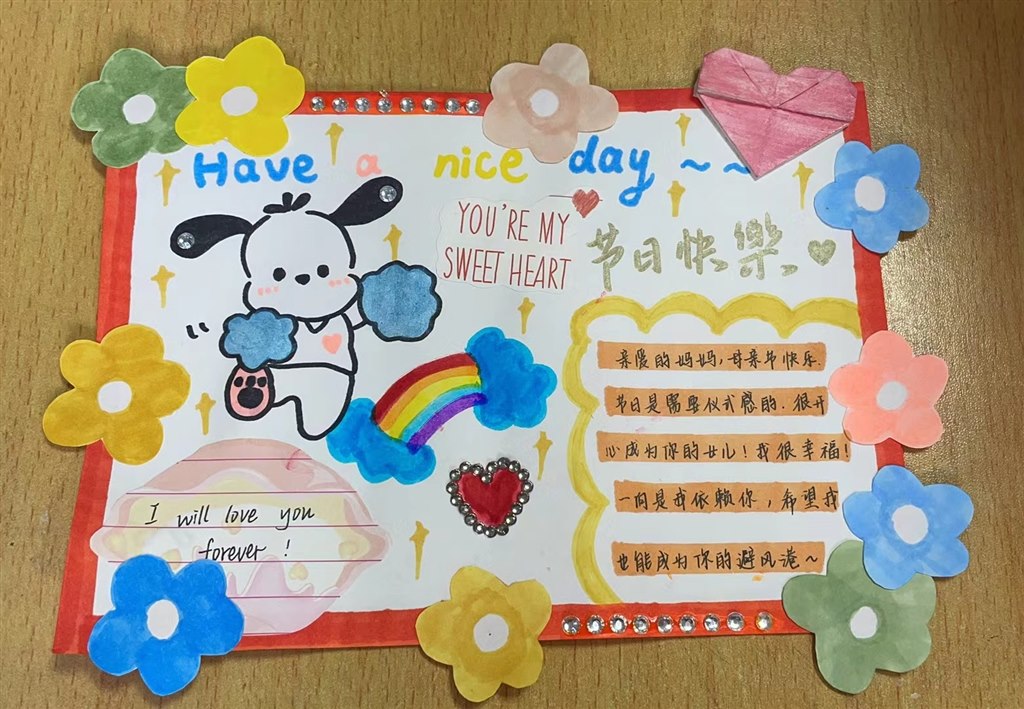 Have a nice day ~~
YOU'RE MY
SWEET HEART
节日快樂
亲爱的妈妈,母亲节快乐.
节日是需要仪式感的.很开
心成为你的女儿!我很幸福!
一向是我依赖你,希望我
也能成为你的避风港~
I will love you
forever!